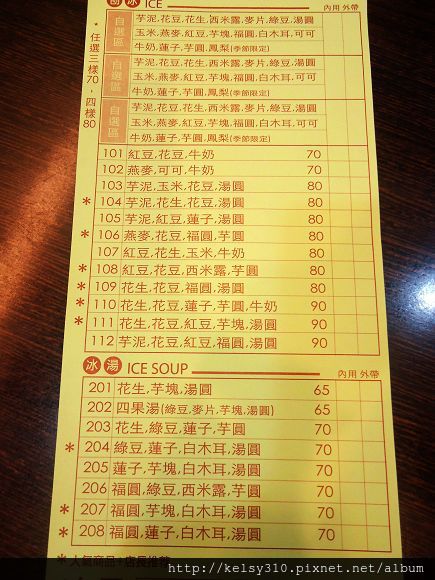 刨冰 ICE 內用 外帶
*任選三樣70，四樣80
自選區
芋泥,花豆,花生,西米露,麥片,綠豆,湯圓
玉米,燕麥,紅豆,芋塊,福圓,白木耳,可可
牛奶,蓮子,芋圓,鳳梨(季節限定)
自選區
芋泥,花豆,花生,西米露,麥片,綠豆,湯圓
玉米,燕麥,紅豆,芋塊,福圓,白木耳,可可
牛奶,蓮子,芋圓,鳳梨(季節限定)
自選區
芋泥,花豆,花生,西米露,麥片,綠豆,湯圓
玉米,燕麥,紅豆,芋塊,福圓,白木耳,可可
牛奶,蓮子,芋圓,鳳梨(季節限定)
101 紅豆,花豆,牛奶 70
102 燕麥,可可,牛奶 70
103 芋泥,玉米,花豆,湯圓 80
* 104 芋泥,花生,花豆,湯圓 80
105 芋泥,紅豆,蓮子,湯圓 80
* 106 燕麥,花豆,福圓,芋圓 80
107 紅豆,花生,玉米,牛奶 80
* 108 紅豆,花豆,西米露,芋圓 80
* 109 花生,花豆,福圓,湯圓 80
* 110 花生,花豆,蓮子,芋圓,牛奶 90
* 111 花生,花豆,紅豆,芋塊,湯圓 90
112 芋泥,花豆,紅豆,福圓,湯圓 90
冰湯 ICE SOUP 內用 外帶
201 花生,芋塊,湯圓 65
202 四果湯(綠豆,麥片,芋塊,湯圓) 65
203 花生,綠豆,蓮子,芋圓 70
* 204 綠豆,蓮子,白木耳,湯圓 70
205 蓮子,芋塊,白木耳,湯圓 70
206 福圓,綠豆,西米露,芋圓 70
* 207 福圓,芋塊,白木耳,湯圓 70
* 208 福圓,蓮子,白木耳,湯圓 70
*人氣商品+店長推荐
http://kelsy310.pixnet.net/album